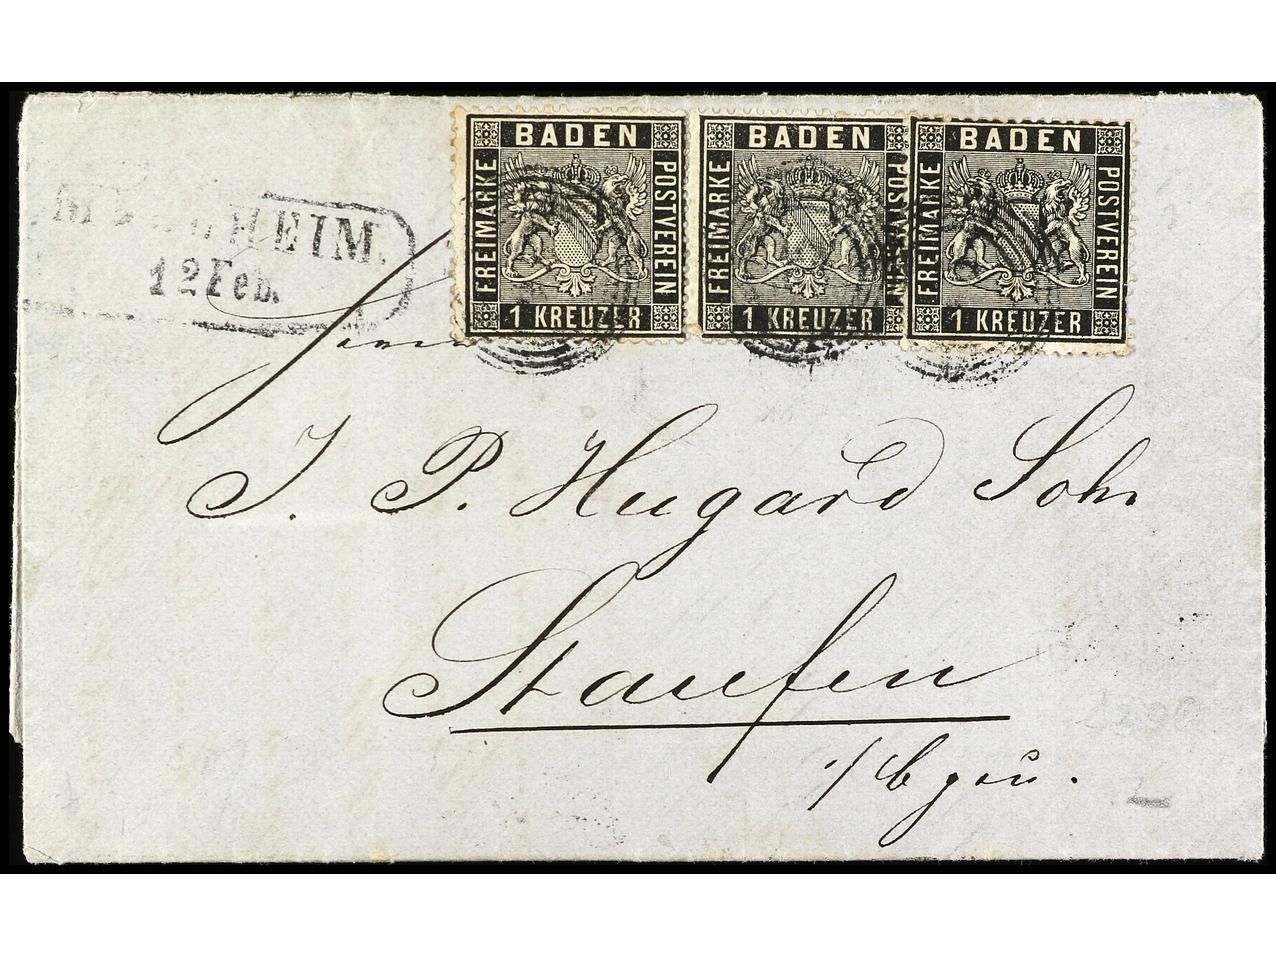 BADEN
FREIMARKE
POSTVEREIN
1 KREUZER
BADEN
FREIMARKE
POSTVEREIN
1 KREUZER
BADEN
FREIMARKE
POSTVEREIN
1 KREUZER
HEIM.
12 Feb.
J. P. Hugard Sohn
Staufen
i/bgau.